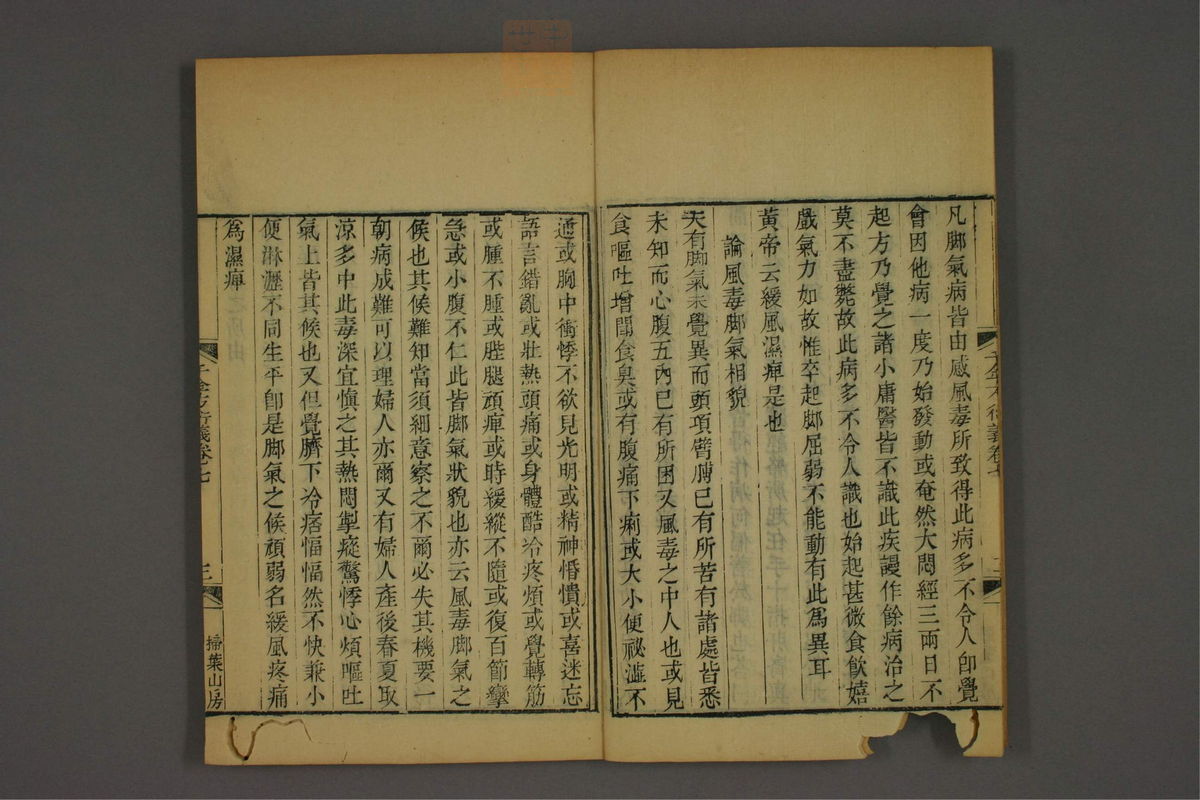 凡脚氣病皆由感風毒所致得此病多不令人卽覺
會因他病一度乃始發動或奄然大悶經三兩日不
起方乃覺之諸小庸醫皆不識此疾謾作餘病治之
莫不盡斃故此病多不令人識也始起甚微食飲嬉
戲氣力如故惟卒起脚屈弱不能動有此爲異耳
黃帝云緩風濕痺是也
論風毒脚氣相貌
夫有脚氣未覺異而頭項臂膊已有所苦有諸處皆悉
未知而心腹五內已有所困又風毒之中人也或見
食嘔吐增聞食臭或有腹痛下痢或大小便祕澁不
通或胸中衝悸不欲見光明或精神惛憒或喜迷忘
語言錯亂或壯熱頭痛或身體酷冷疼煩或覺轉筋
或腫不腫或䏶腿頑痺或時緩縱不隨或復百節攣
急或小腹不仁此皆脚氣狀貌也亦云風毒脚氣之
候也其候難知當須細意察之不爾必失其機要一
朝病成難可以理婦人亦爾又有婦人產後春夏取
涼多中此毒深宜愼之其熱悶掣瘲驚悸心煩嘔吐
氣上皆其候也又但覺臍下冷痞愊愊然不快兼小
便淋瀝不同生平卽是脚氣之候頑弱名緩風疼痛
爲濕痺
千金方衍義卷七
三
掃葉山房